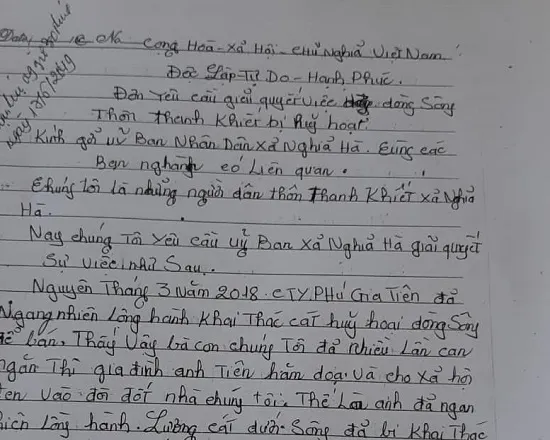 Cộng Hoà - Xã Hội - Chủ Nghĩa Việt Nam
Độc Lập - Tự Do - Hạnh Phúc.
Đơn yêu cầu giải quyết việc dòng Sông
Thôn Thanh Khiết bị huỷ hoại.
Kính gởi uỷ Ban Nhân Dân xã Nghĩa Hà. Cùng các
Ban nghành có Liên quan.
Chúng tôi là những người dân thôn Thanh Khiết xã Nghĩa
Hà.
Nay chúng Tôi yêu cầu uỷ Ban xã Nghĩa Hà giải quyết
Sự việc như Sau.
Nguyên Tháng 3 Năm 2018. CTY. Phú Gia Tiên đã
Ngang nhiên Lộng hành Khai Thác cát huỷ hoại dòng Sông
để bán. Thấy Vậy bà con chúng Tôi đã nhiều Lần can
ngăn Thì gia đình anh Tiên hăm doạ. Và cho xã hội
đen vào đòi đốt nhà chúng tôi. Thế Là anh đã ngan
nhiên Lộng hành. Lượng cát dưới Sông đã bị Khai Thác
17/6/2019